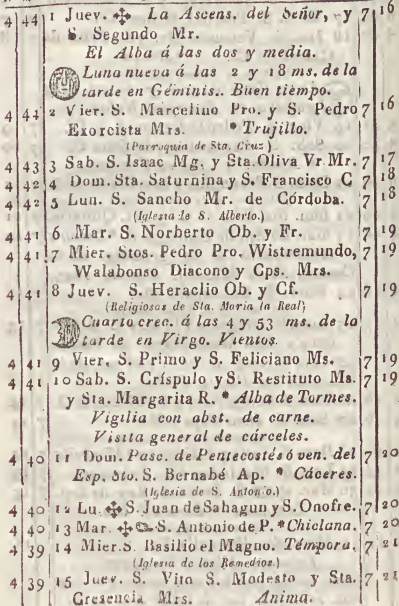 4 44 1 Juev. ✠ La Ascens. del Señor, y 7 16
S. Segundo Mr.
El Alba á las dos y media.
Luna nueva á las 2 y 18 ms. de la
tarde en Géminis. Buen tiempo.
4 43 2 Vier. S. Marcelino Pro. y S. Pedro 7 16
Exorcista Mrs. * Trujillo.
(Parroquia de Sta. Cruz)
4 43 3 Sab. S. Isaac Mg. y Sta. Oliva Vr. Mr. 7 17
4 42 4 Dom. Sta. Saturnina y S. Francisco C 7 18
4 42 5 Lun. S. Sancho Mr. de Córdoba. 7 18
(Iglesia de S. Alberto.)
4 41 6 Mar. S. Norberto Ob. y Fr. 7 19
4 41 7 Mier. Stos. Pedro Pro. Wistremundo, 7 19
Walabonso Diacono y Cps. Mrs.
4 41 8 Juev. S. Heraclio Ob. y Cf. 7 19
(Religiosas de Sta. Maria la Real)
Cuarto crec. á las 4 y 53 ms. de la
tarde en Virgo. Vientos.
4 41 9 Vier. S. Primo y S. Feliciano Ms. 7 19
4 41 10 Sab. S. Críspulo y S. Restituto Ms. 7 19
y Sta. Margarita R. * Alba de Tormes.
Vigilia con abst. de carne.
Visita general de cárceles.
4 40 11 Dom. Pasc. de Pentecostés ó ven. del 7 20
Esp. Sto. S. Bernabé Ap. * Cáceres.
(Iglesia de S. Antonio.)
4 40 12 Lu. ✠ S. Juan de Sahagun y S. Onofre. 7 20
4 40 13 Mar. ✠ S. Antonio de P. * Chiclana. 7 20
4 39 14 Mier. S. Basilio el Magno. Témpora. 7 21
(Iglesia de los Remedios.)
4 39 15 Juev. S. Vito S. Modesto y Sta. 7 21
Crescencia Mrs. Anima.